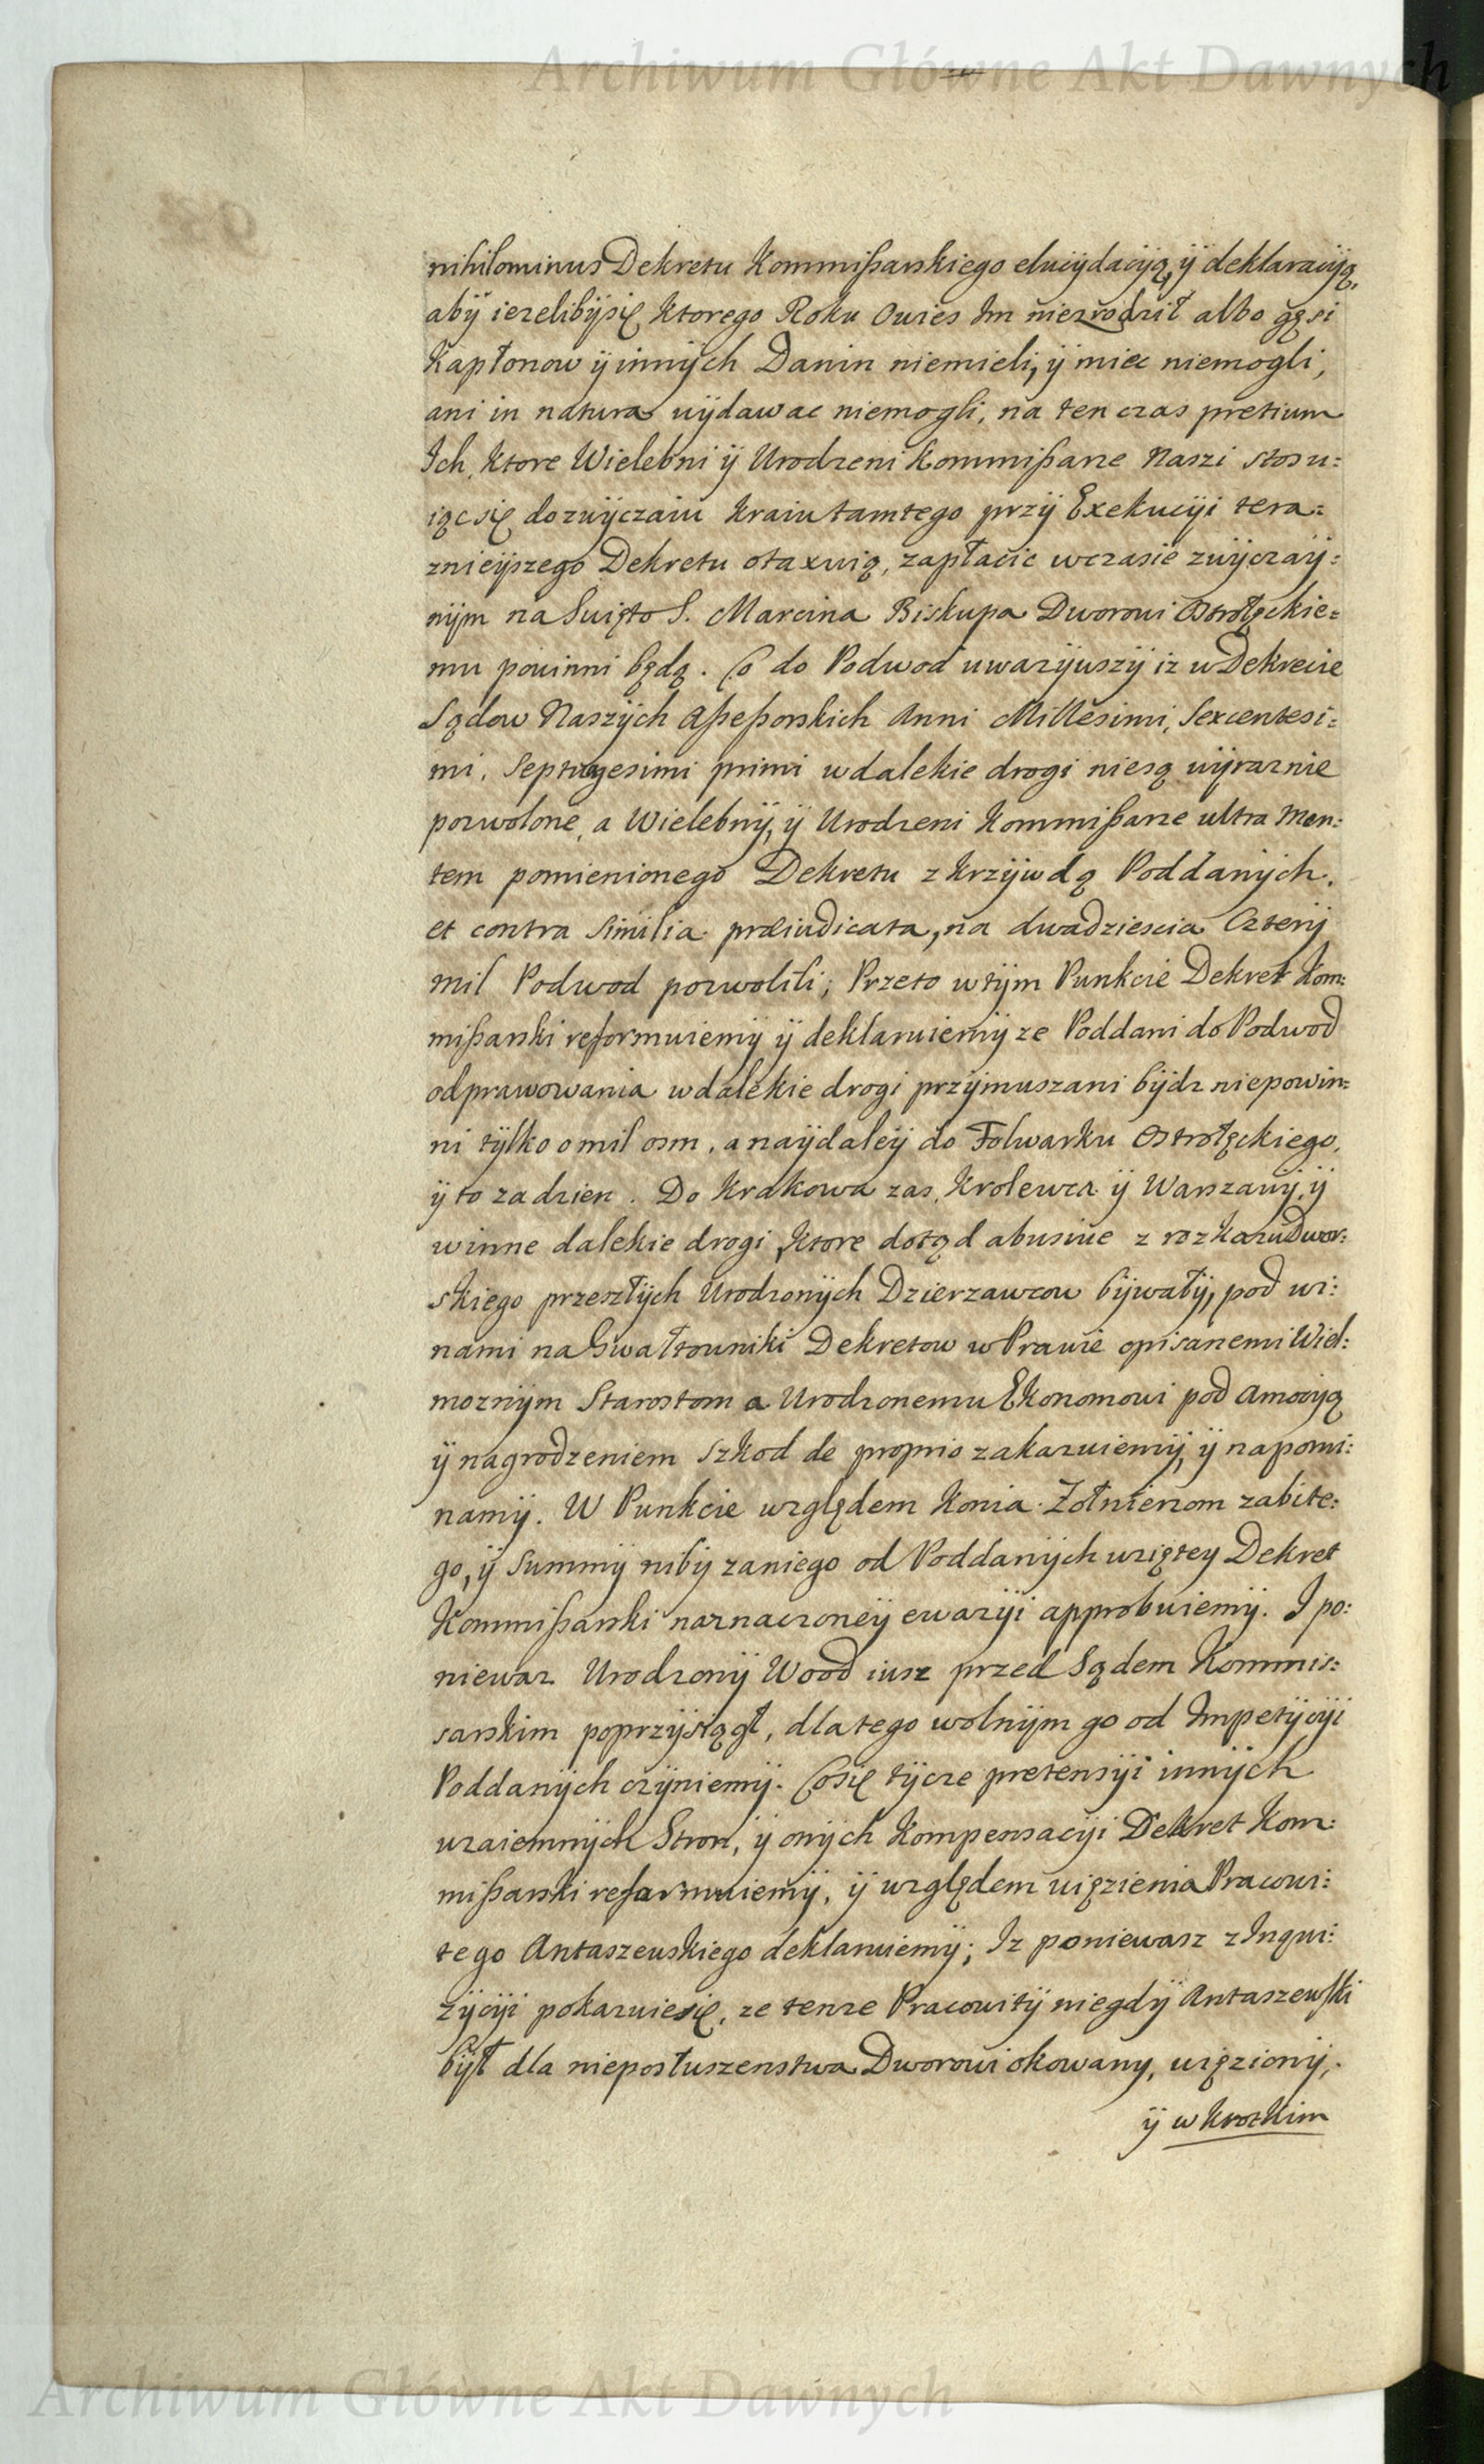 Archiwum Główne Akt Dawnych
nihilominus Dekretu Kommißarskiego elucÿdacÿą, ÿ deklaracÿą,
abÿ iezelibÿsię ktorego Roku Owies Im niezrodził albo gęsi
Kapłonow ÿ innÿch Danin niemieli, ÿ miec niemogli,
ani in natura wÿdawac niemogli, na ten czas pretium
Ich, ktore Wielebni ÿ Urodzeni Kommißarze Naszi stosu:
iąc się do zwÿczaiu kraiu tamtego przÿ Exekucÿi tera:
znieÿszego Dekretu otaxuią, zapłacic wczasie zwÿczaÿ:
nÿm na Swięto S. Marcina Biskupa Dworowi Ostrołęckie:
mu powinni będą. Co do Podwod uwazÿwszÿ iz w Dekrecie
Sądow Naszÿch Aßeßorskich Anni Millesimi, Sexcentesi:
mi, Septuagesimi primi wdalekie drogi niesą wÿraznie
pozwolone, a Wielebnÿ, ÿ Urodzeni Kommißarze ultra Men:
tem pomienionego Dekretu z krzÿwdą Poddanÿch,
et contra similia præiudicata, na dwadziescia Czterÿ
mil Podwod pozwolili; Przeto wtÿm Punkcie Dekret Kom:
mißarski reformuiemÿ ÿ deklaruiemÿ ze Poddani do Podwod
odprawowania wdalekie drogi przÿmuszani bÿdz niepowin:
ni tÿlko o mil osm, a naÿdaleÿ do Folwarku Ostrołęckiego,
ÿ to za dzien. Do Krakowa zas, Krolewca ÿ Warszawÿ, ÿ
winne dalekie drogi, ktore dotąd abusive z rozkazu Dwor:
skiego przeszłÿch Urodzonÿch Dzierzawcow bÿwałÿ, pod wi:
nami na Gwałtowniki Dekretow w Prawie opisanemi Wiel:
moznÿm Starostom a Urodzonemu Ekonomowi pod amocÿą
ÿ nagrodzeniem szkod de proprio zakazuiemÿ, ÿ napomi:
namÿ. W Punkcie względem Konia Zołnierzom zabite:
go, ÿ summÿ nibÿ zaniego od Poddanÿch wziętey Dekret
Kommißarski naznaczoneÿ ewazÿi approbuiemÿ. I po:
niewaz Urodzonÿ Wood iusz przed Sądem Kommis:
sarskim poprzÿsiągł, dla tego wolnÿm go od Impetÿcÿi
Poddanÿch czÿniemÿ. Co się tÿcze pretensÿi innÿch
wzaiemnÿch Stron, ÿ onÿch Kompensacÿi Dekret Kom:
mißarski reformuiemÿ, ÿ względem więzienia Pracowi:
tego Antaszewskiego deklaruiemÿ; Iz poniewasz z Inqui:
zÿcÿi pokazuiesię, ze tenze Pracowitÿ niegdÿ Antaszewski
bÿł dla nieposłuszenstwa Dworowi okowany, więzionÿ,
ÿ w krotkim
Archiwum Główne Akt Dawnych